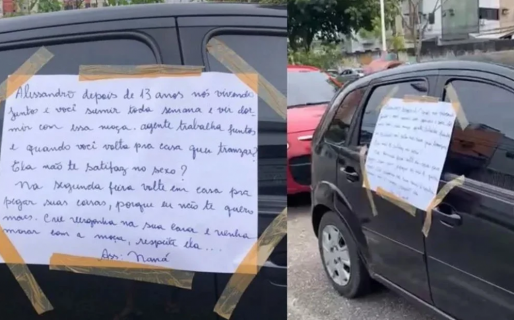 Alessandro depois de 13 anos nós vivendo
junto e você sumir toda semana e vir dor-
mir com essa moça. agente trabalha juntos
e quando você volta pra casa quer transar?
Ela não te satisfaz no sexo?
Na segunda feira volte em casa pra
pegar suas coisas, porque eu não te quero
mais. Crie vergonha na sua cara e venha
morar com a moça, respeite ela...
Ass. Naná